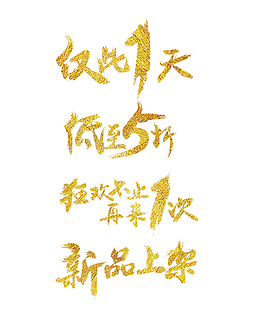 仅此1天
低至5折
狂欢不止
再来1次
新品上架